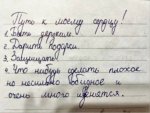 Путь к моему сердцу!
1. Быть дерзким.
2. Дарить подарки.
3. Защищать!
4. Что нибудь сделать плохое
не несильно обидное и
очень много извенятся.